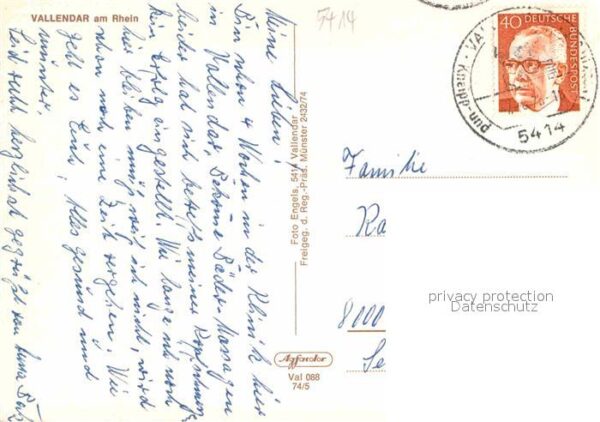 VALLENDAR am Rhein
5414
Meine Lieben!
Bin schon 4 Wochen in der Klinik hier
in Vallendar. Bekomme Bäder-Massagen
leider hat sich betreffs meiner
kein Erfolg eingestellt. Wie lange ich noch
hier bleiben muß weiß ich nicht, wird
schon noch eine Zeit vergehen. Wie
geht es Euch, Alles gesund und
munter.
Seid recht herzlichst gegrüßt von
Foto Engels, 5414 Vallendar
Freigeg. d. Reg.-Präs. Münster 2432/74
Agfacolor
Val 088
74/5
40
DEUTSCHE
BUNDESPOST
5414
Familie
Ra
8000
Se
privacy protection
Datenschutz